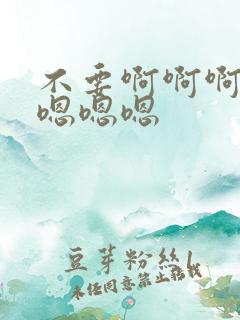 不要啊啊啊
嗯嗯嗯
豆芽粉丝1
未经同意禁止转载